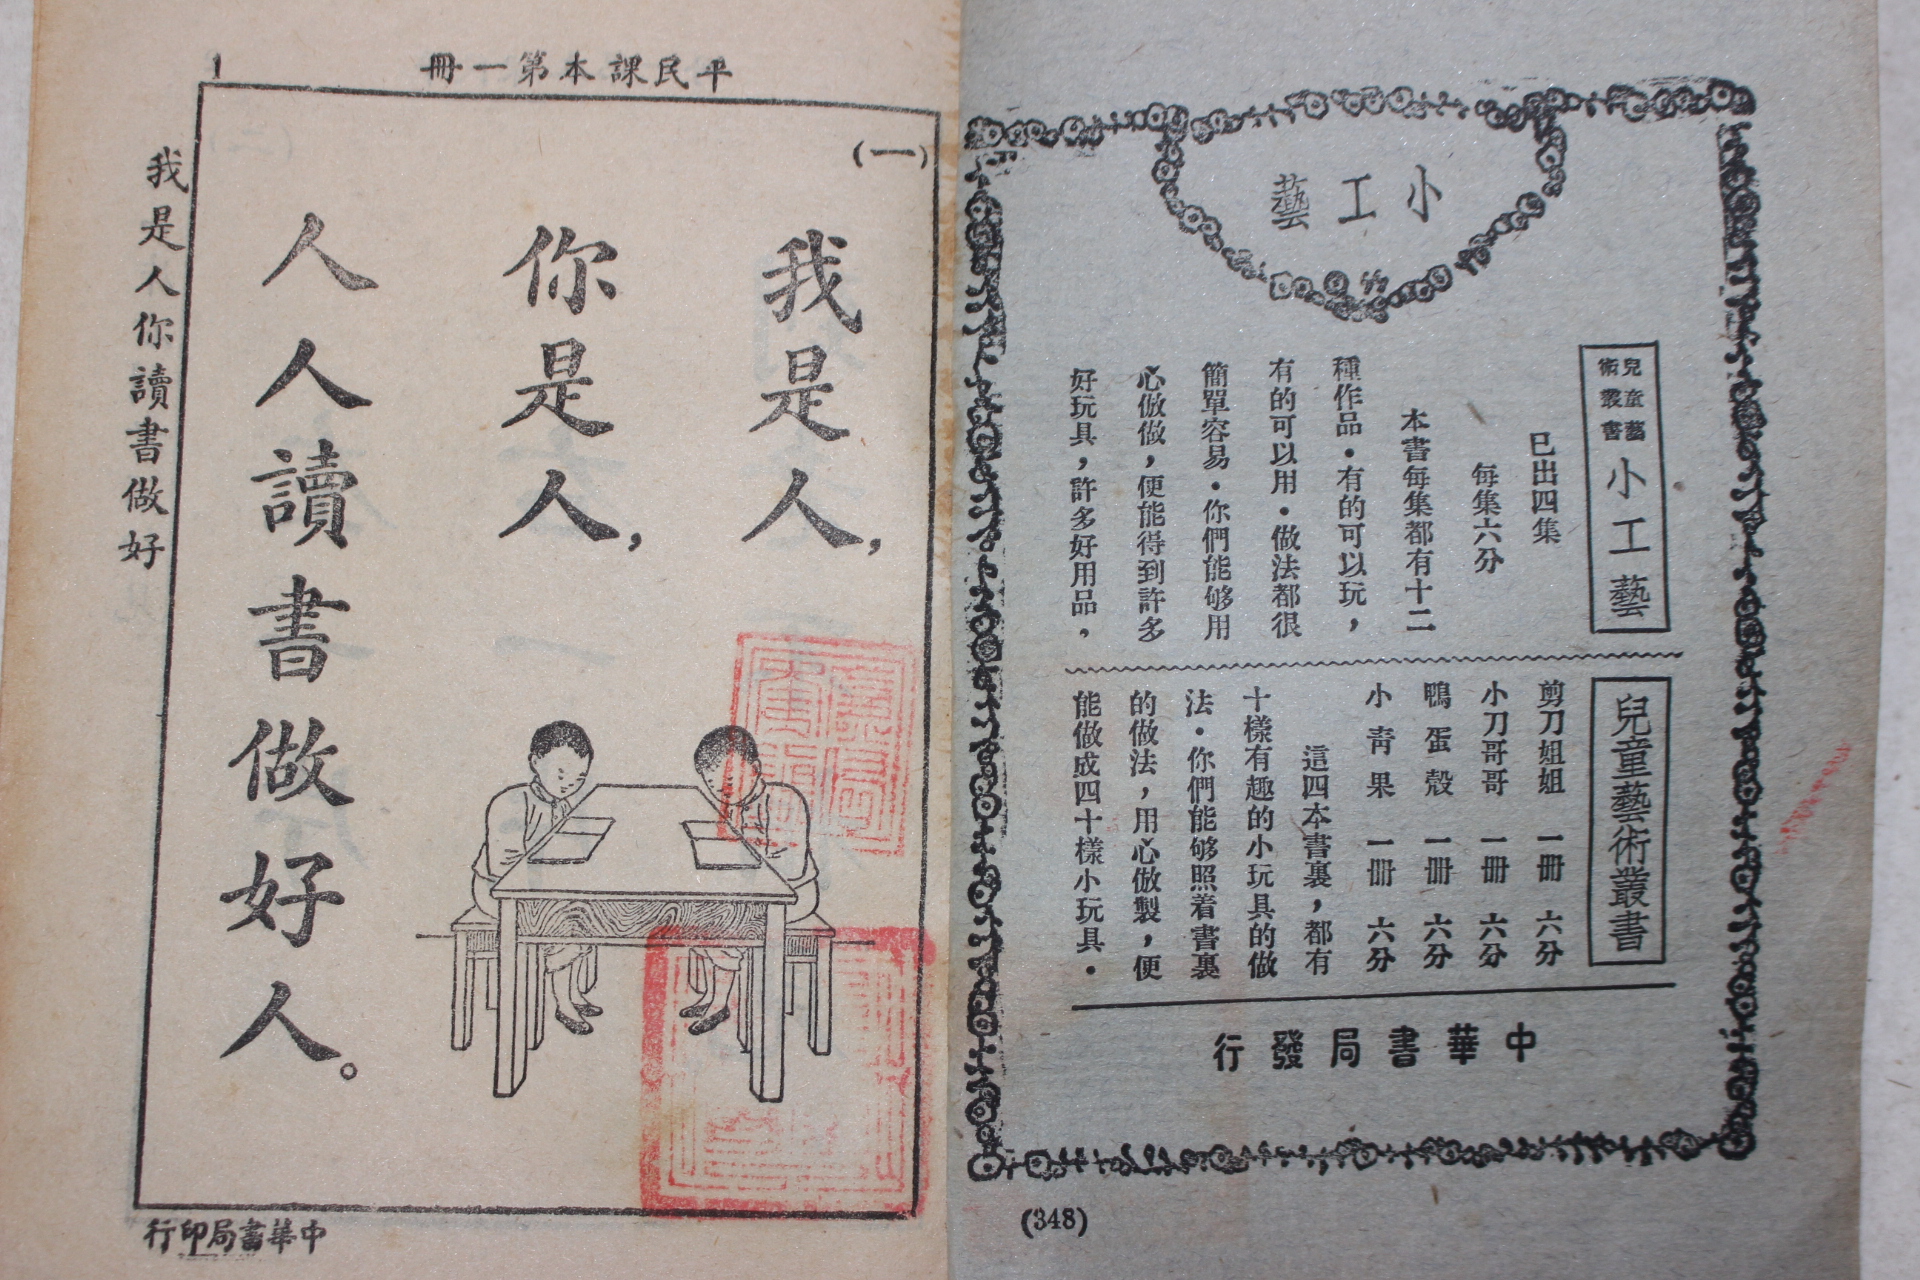 小工藝
兒童藝術叢書 小工藝
已出四集
每集六分
本書每集都有十二
種作品．有的可以玩，
有的可以用．做法都很
簡單容易．你們能够用
心倣做，便能得到許多
好玩具，許多好用品，
兒童藝術叢書
剪刀姐姐 一冊 六分
小刀哥哥 一冊 六分
鴨蛋殼 一冊 六分
小青果 一冊 六分
這四本書裏，都有
十樣有趣的小玩具的做
法．你們能够照着書裏
的做法，用心倣製，便
能做成四十樣小玩具．
中華書局發行
(348)
平民課本第一冊
1
(一)
我是人，
你是人，
人人讀書做好人。
我是人你讀書做好
中華書局印行